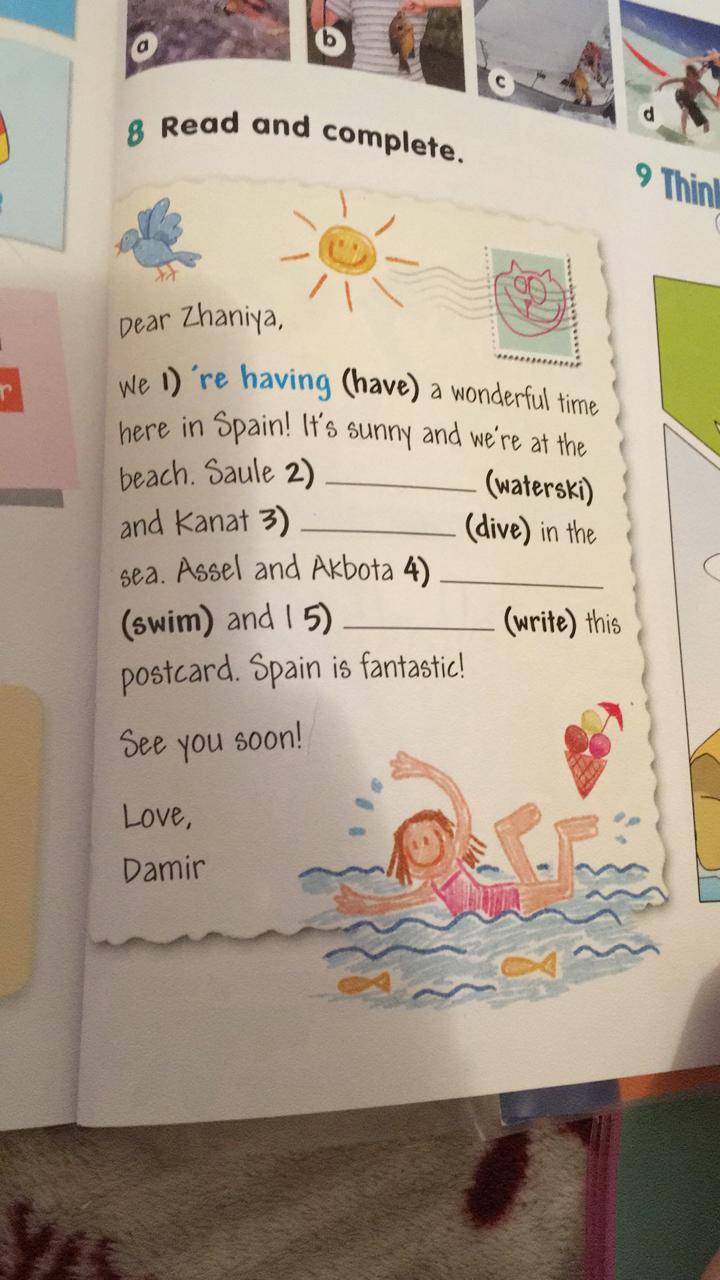 a
b
c
d
8 Read and complete.
9
Dear Zhaniya,
We 1) 're having (have) a wonderful time
here in Spain! It's sunny and we're at the
beach. Saule 2) __________ (waterski)
and Kanat 3) __________ (dive) in the
sea. Assel and Akbota 4) __________
(swim) and I 5) __________ (write) this
postcard. Spain is fantastic!
See you soon!
Love,
Damir